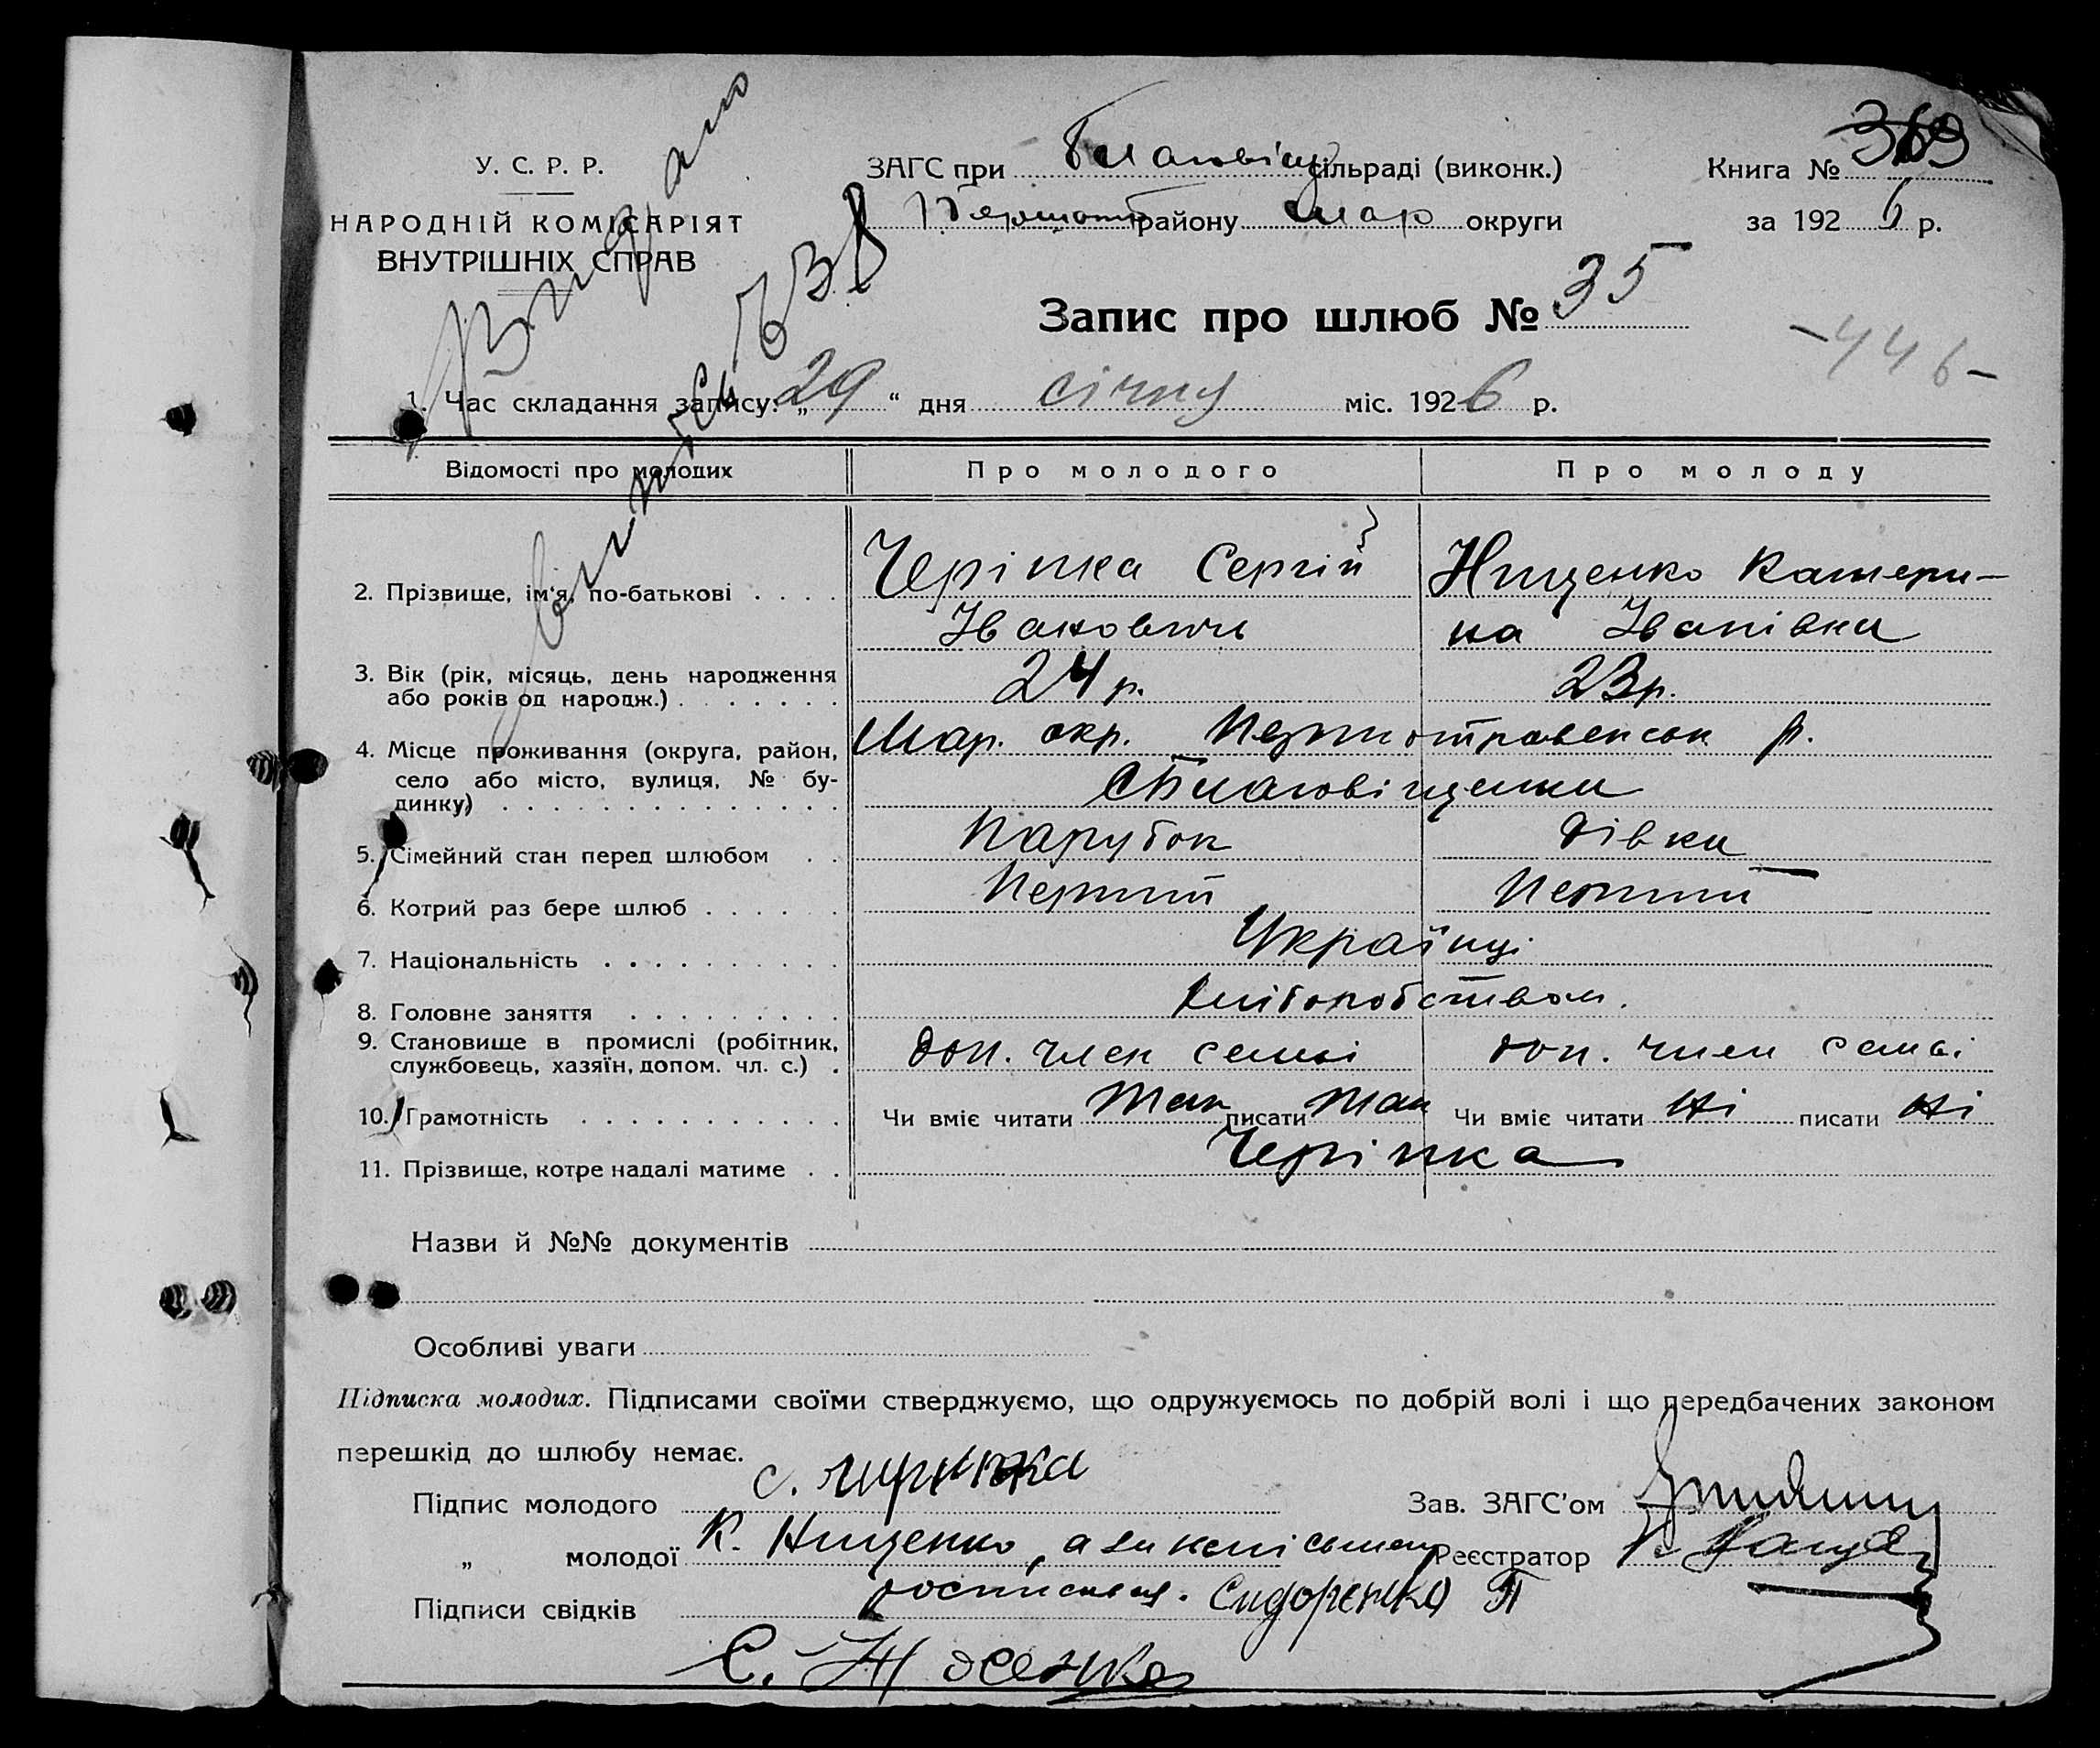 У. С. Р. Р.
НАРОДНІЙ КОМІСАРІЯТ
ВНУТРІШНІХ СПРАВ
Видано
ЗАГС при Благовіщ сільраді (виконк.)
району Мар округи
Книга № 369
за 1926 р.
Запис про шлюб № 35
-446-
1. Час складання запису: „29“ дня січня міс. 1926 р.
Відомості про молодих Про молодого Про молоду
2. Прізвище, ім'я, по-батькові . . . . Черіпка Сергій Нищенко Катери-
Іванович на Іванівна
3. Вік (рік, місяць, день народження
або років од народж.) . . . . . . . 24 р. 23 р.
4. Місце проживання (округа, район, Мар. окр. Першотравенськ р.
село або місто, вулиця, № бу-
динку) . . . . . . . . . . . . . . С Благовіщенки
5. Сімейний стан перед шлюбом . . Парубок дівка
6. Котрий раз бере шлюб . . . . . Перший Перший
7. Національність . . . . . . . . . . Українці
8. Головне заняття . . . . . . . . . Хліборобством.
9. Становище в промислі (робітник,
службовець, хазяїн, допом. чл. с.) . доп. член семьі доп. член семьі
10. Грамотність . . . . . . . . . . . Чи вміє читати Так писати Так Чи вміє читати Ні писати Ні
11. Прізвище, котре надалі матиме . . Черіпка
Назви й №№ документів
Особливі уваги
Підписка молодих. Підписами своїми стверджуємо, що одружуємось по добрій волі і що передбачених законом
перешкід до шлюбу немає.
Підпис молодого С. Чирипка Зав. ЗАГС'ом
„ молодої К. Нищенко, а за Реєстратор
Підписи свідків Сидоренко П
С.